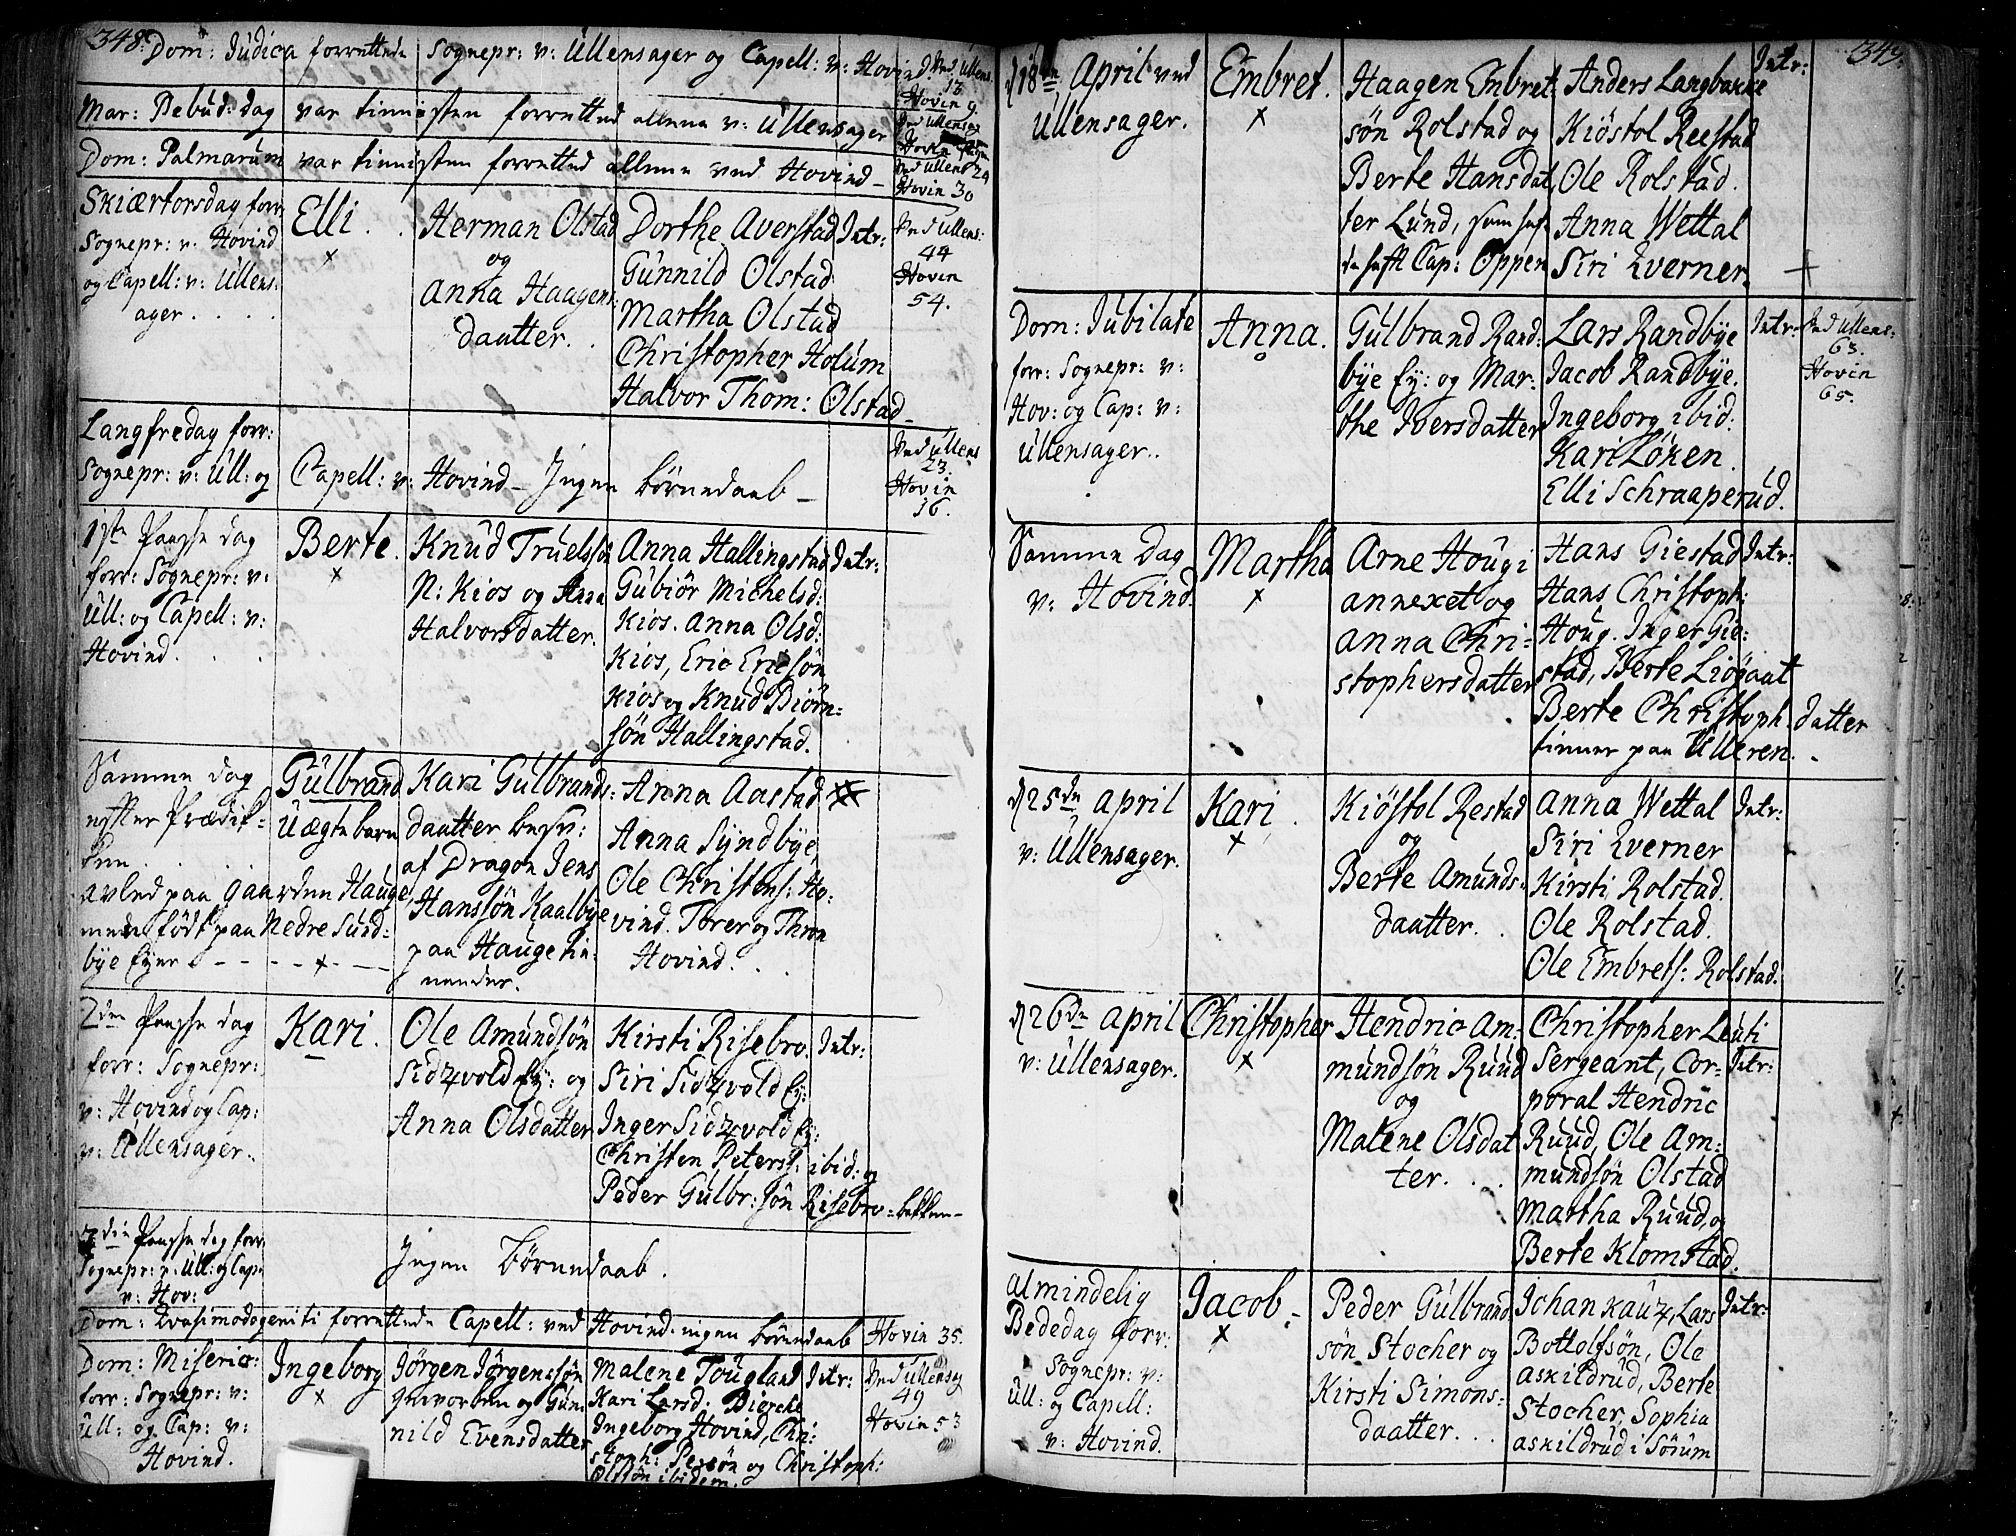 348.
Dom: Judica forrettede Sognepr: v: Ullensager og Capell: v: Hovind Ved Ullens: 13
Hovin 9.
Mar: Bebud: dag var tienisten forretted allene v: Ullensager Ved Ullensag
Hovin
Dom: Palmarum var tienisten forretted allene ved Hovind Ved Ullens 24
Hovin 30
Skiærtorsdag forr:
Sognepr: v: Hovind
og Capell: v: Ullens:
ager . . . .
Elli . .
Herman Olstad
og
Anna Haagens:
daatter. .
Dorthe Averstad
Gunnild Olstad
Martha Olstad
Christopher Holum
Halvor Thom: Olstad
Intr:
Ved Ullens:
44
Hovin
54.
Langfredag forr:
Sognepr: v: Ull: og Capell: v: Hovind - Ingen børnedaab -
Ved Ullens
23.
Hovin
16.
1ste Paaske dag
forr: Sognepr: v:
Ull: og Capell: v:
Hovind. . .
Berte.
Knud Truelssøn
N: Kios og Anna
Halvorsdatter.
Anna Hallingstad
Gubiør Michelsd:
Kios. Anna Olsd:
Kios, Eric Ericsøn
Kios og Knud Biørn:
søn Hallingstad.
Intr:
Samme dag
efter Prædik:
ken. . .
avled paa gaarden Hauge,
men født paa Nedre Sund:
bye Eyer - - - -
Gulbrand
Uægte barn
Kari Gulbrands:
daatter besv:
af Dragon Jens
Hanssøn Kaalbye
paa Hauge tie:
nender.
Anna Aastad
Anna Syndbye,
Ole Christens: Ho:
vind. Torer og Thron
Hovind. . .
2den Paaske dag
forr: Sognepr:
v: Hovind og Cap:
v: Ullensager.
Kari.
Ole Amundsøn
Sidzvold Ey: og
Anna Olsdatter
Kirsti Risebro
Siri Sidzvold Ey:
Inger Sidzvold Ey:
Christen Peters: ibid: og
Peder Gulbr: søn Risebro-bakken-
Intr:
3die Paaske dag forr:
Sognepr: v: Ull: og Cap:
v: Hov:
Ingen børnedaab.
Dom: Qvasimodogeniti forrettede Capell: ved Hovind ingen børnedaab Hovin 35.
Dom: Miseric:
forr: Sognepr: v:
Ull: og Cap: v:
Hovind.
Ingeborg
Jørgen Jørgenssøn
og Gun
nild Evensdatter
Malene Tougland
Kari Larsd: Biercke
Ingeborg Hovind, Chri:
stoph: Persøn og Christoph:
Olssøn ibidem.
Intr:
Ved Ullensag
49
Hovin 53
349.
d 18de April ved
Ullensager.
Embret.
Haagen Embret
søn Rolstad og
Berte Hansdat
ter Lund, som
Cap: Oppen
Anders Langbakke
Kiøstol Reestad
Ole Rolstad.
Anna Wettal
Siri Qverner.
Intr:
Dom: Jubilate
forr: Sognepr: v:
Hov: og Cap: v:
Ullensager..
Anna.
Gulbrand Rand:
bye Ey: og Mar:
the Iversdatter
Lars Randbye
Jacob Randbye.
Ingeborg ibid:
Kari Løken.
Elli Schraaperud.
Intr:
Ved Ullens:
63.
Hovin
65.
Samme Dag
v: Hovind.
Martha
Arne Hougi
annexet og
Anna Chri:
stophersdatter
Hans Giestad
Hans Christoph:
Houg. Inger Gie:
stad, Berte Liøgaat
Berte Christoph. datter
tiener paa Ulleren.
Intr:
d 25de April
v: Ullensager.
Kari.
Kiøstol Restad
og
Berte Amunds:
daatter. .
Anna Wettal
Siri Qverner
Kirsti Rolstad.
Ole Rolstad.
Ole Embrets: Rolstad.
Intr:
d 26de April
v: Ullensager.
Christopher
Hendric Am:
mundsøn Ruud
og
Malene Olsdat
ter. . .
Christopher Leuti
Sergeant, Cor:
poral Hendric
Ruud, Ole Am:
mundsøn Olstad
Martha Ruud, og
Berte Klomstad.
Intr:
Almindelig
Bededag forr:
Sognepr: v:
Ull: og Capell:
v: Hovind.
Jacob.
Peder Gulbrand
søn Stocher og
Kirsti Simons:
daatter. . .
Johan Kauz, Lars
Bottolfsøn, Ole
Askildrud, Berte
Stocher, Sophia
Askildrud i Sørum
Intr: